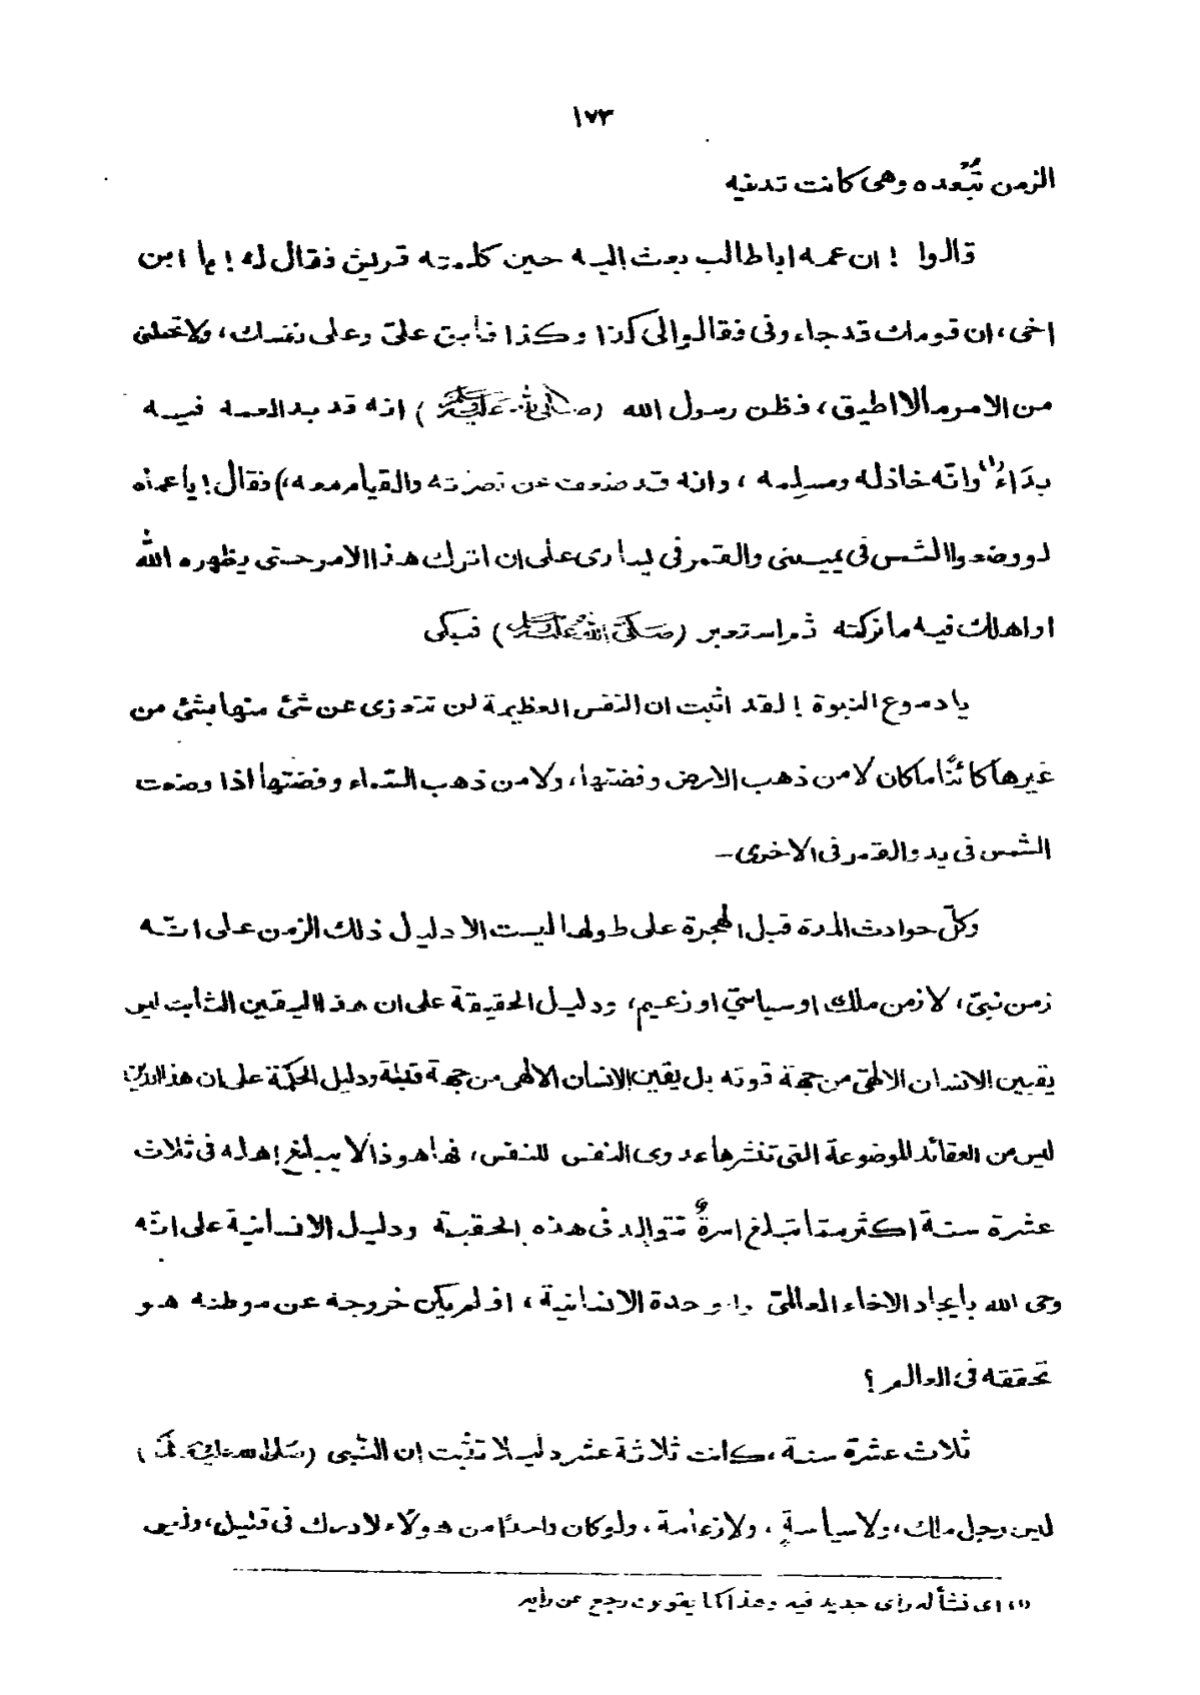 ١٧٣
الزمن تُبْعده وهى كانت تدنيه
قالوا ! ان عمه ابا طالب بعث اليه حين كلمته قريش فقال له ! يا ابن
اخى، ان قومك قد جاءونى فقالوا الىّ كذا وكذا فأبق علىّ وعلى نفسك، ولا تحملنى
من الامر مالا اطيق، فظن رسول الله (صلى الله عليه وسلم) انه قد بدا لعمه فيه
بدَاءٌ(١) وانّه خاذله ومسلمه، وانه قد ضعف عن نصرته والقيام معه،) فقال! يا عماه
لو وضعوا الشمس فى يمينى والقمر فى يسارى على ان اترك هذا الامر حتى يظهره الله
او اهلك فيه ما تركته ثم استعبر (صلى الله عليه وسلم) فبكى
يا دموع النبوة ! لقد اثبت ان النفس العظيمة لن تتعزى عن شئ منها بشئ من
غيرها كائنًا ما كان لا من ذهب الارض وفضتها، ولا من ذهب السماء وفضتها اذا وضعت
الشمس فى يد والقمر فى الاخرى–
وكلّ حوادث المدة قبل الهجرة على طولها ليست الا دليل ذلك الزمن على انّه
زمن نبىّ، لا زمن ملك او سياسيّ او زعيم، ودليل الحقيقة على ان هذا اليقين الثابت ليس
يقين الانسان الالهىّ من جهة قوته بل يقين الانسان الالهى من جهة قلبه ودليل الحكمة على ان هذا الدين
ليس من العقائد الموضوعة التى تنشرها عدوى النفس للنفس، فها هو ذا لا يبلغ اهله فى ثلاث
عشرة سنة اكثر مما تبلغ اسرةٌ تتوالد فى هذه الحقبة ودليل الانسانية على انّه
وحى الله بايجاد الاخاء العالمىّ والوحدة الانسانية، اذ لم يكن خروجه عن موطنه هو
تحققه فى العالم؟
ثلاث عشرة سنة، كانت ثلاثة عشر دليلا تثبت ان النّبى (صلى الله عليه وسلم)
ليس رجل ملك، ولا سياسةٍ، ولا زعامة، ولو كان واحدًا من هؤلاء لادرك فى قليل، وليس
(١) اى نشأ له رأى جديد فيه وهذا كما يقولون رجع عن رأيه